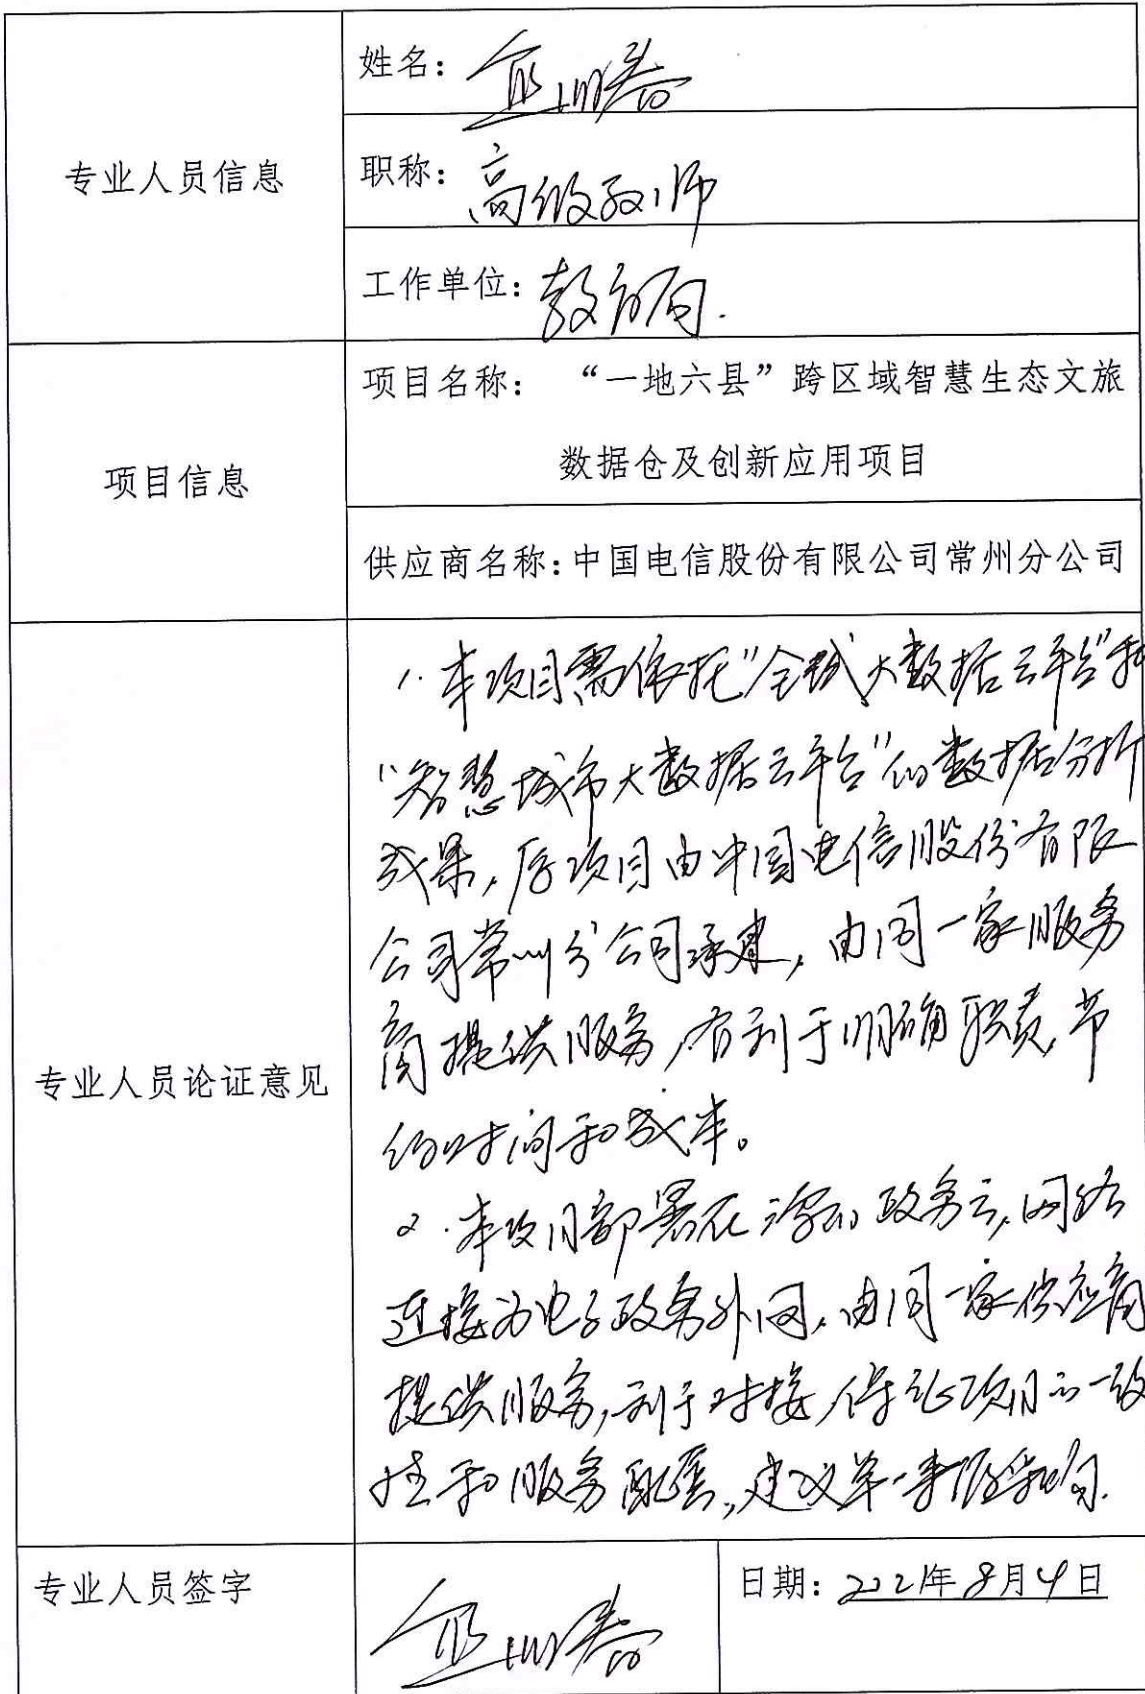 姓名：
专业人员信息
职称：高级教师
工作单位：教育局.
项目信息
项目名称： “一地六县”跨区域智慧生态文旅
数据仓及创新应用项目
供应商名称：中国电信股份有限公司常州分公司
专业人员论证意见
1.本项目需依托“全域大数据云平台”和
“智慧城市大数据云平台”的数据分析
成果，原项目由中国电信股份有限
公司常州分公司承建，由同一家服务
商提供服务，有利于明确职责，节
约时间和成本。
2.本项目部署在溧阳政务云，网络
连接为电子政务外网，由同一家供应商
提供服务，利于对接，保证项目的一致
性和服务配套，建议单一来源采购.
专业人员签字
日期：2021年8月4日